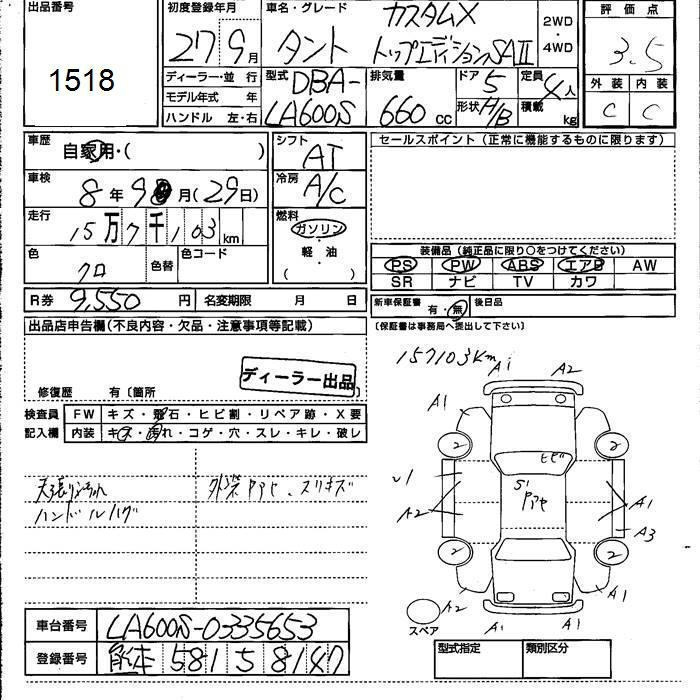 出品番号
1518
初度登録年月
27 9月
車名・グレード
タント
カスタムX
トップエディションSAⅡ
2WD
・
4WD
評価点
3.5
外装 内装
C C
ディーラー・並行
モデル年式 年
ハンドル 左・右
型式 DBA-
LA600S
排気量
660 cc
ドア 5
形状 H/B
定員 4人
積載 kg
車歴
自家用・( )
車検
8年9月(29日)
走行
15万7千103km
色
クロ
色替
色コード
R券 9,550円
名変期限 月 日
シフト
AT
冷房
A/C
燃料
ガソリン
・
軽油
( )
セールスポイント(正常に機能するものに限ります)
装備品(純正品に限り○をつけてください)
PS PW ABS エアB AW
SR ナビ TV カワ
新車保証書 有・無 後日品
(保証書は事務局へ提出して下さい)
出品店申告欄(不良内容・欠品・注意事項等記載)
ディーラー出品
修復歴 有〔箇所
検査員
記入欄
FW キズ・飛石・ヒビ割・リペア跡・X要
内装 キズ・汚れ・コゲ・穴・スレ・キレ・破レ
ハンドルハゲ
外装 スリキズ
157103Km
A1 A2
A1
2 2
ヒビ
A2
A1
A3
2 2
A2 A1 A1 A1
スペア
車台番号 LA600S-0335653
登録番号 熊本 581 5 8147
型式指定 類別区分